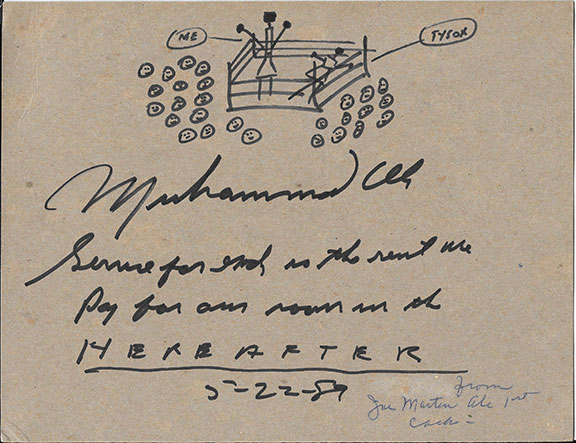 ME
TYSON
Muhammad Ali
Service for is the rent we
Pay for our room in the
HEREAFTER
5-22-89
from
Joe Martin Ali 1st